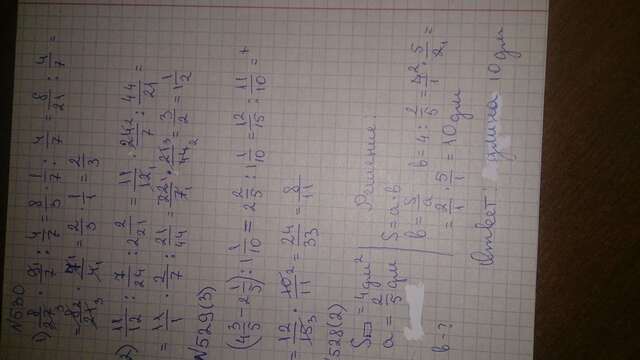 №530
1) 8/27 · 9/7 : 4/7 = 8/3 · 1/7 : 4/7 = 8/21 : 4/7 =
= 8/21 · 7/4 = 2/3 · 1/1 = 2/3
2) 11/12 : 7/24 : 2 2/21 = 11/12 · 24/7 : 44/21 =
= 11/1 · 2/7 : 21/44 = 22/7 · 21/44 = 3/2 = 1 1/2
№529(3)
(4 3/5 - 2 1/5) : 1 1/10 = 2 2/5 : 1 1/10 = 12/15 : 11/10 =
= 12/15 · 10/11 = 24/33 = 8/11
528(2)
S▭ = 4 дм²
a = 2/5 дм
b - ?
Решение:
S = a · b
b = S/a b = 4 : 2/5 = 4/1 · 5/2 =
= 2/1 · 5/1 = 10 дм
Ответ: длина 10 дм